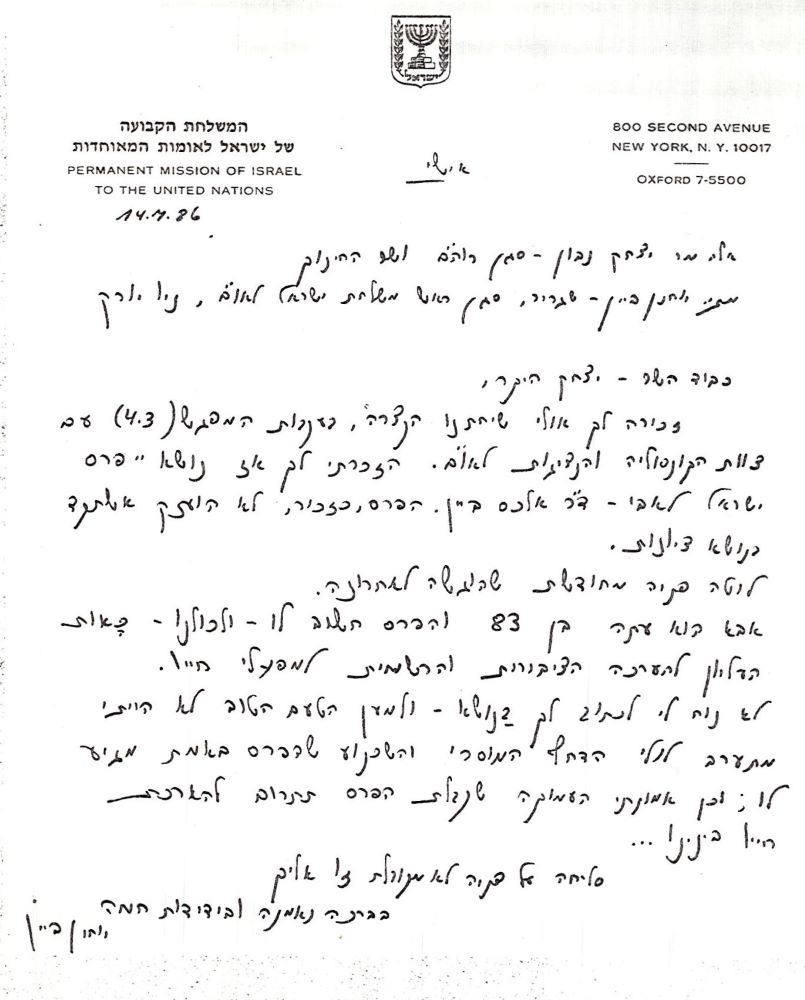 ישראל
המשלחת הקבועה
של ישראל לאומות המאוחדות
PERMANENT MISSION OF ISRAEL
TO THE UNITED NATIONS
800 SECOND AVENUE
NEW YORK, N. Y. 10017
OXFORD 7-5500
אישי
אל: מר יצחק נבון - סגן רוה"מ ושר החינוך
מאת: יוחנן ביין - שגריר, סגן ראש משלחת ישראל לאו"ם, ניו יורק
כבוד השר - יצחק היקר,
זכורה לך אולי שיחתנו הקצרה, בעקבות המפגש (4.3) עם
צוות הקונסוליה והנציגות לאו"ם. הזכרתי לך אז נושא "פרס
ישראל" לאבי - ד"ר אלכס ביין. הפרס, כזכור, לא הוענק אשתקד
בנושא ציונות.
לוטה פניה מחודשת שהוגשה לאחרונה.
אבא הוא עתה בן 83 והפרס חשוב לו - ולכולנו - כאות
העליון להערכה הציבורית והרשמית למפעלי חייו.
לא נוח לי לכתוב לך בנושא - ולמען הטעם הטוב לא הייתי
מתערב לולי הדחף המוסרי והשכנוע שהפרס באמת מגיע
לו; וכן אמונתי העמוקה שקבלת הפרס תתרום להארכת
חייו בינינו...
סליחה על פניה לא מקובלת זו אליך
בברכה נאמנה ובידידות חמה
יוחנן ביין